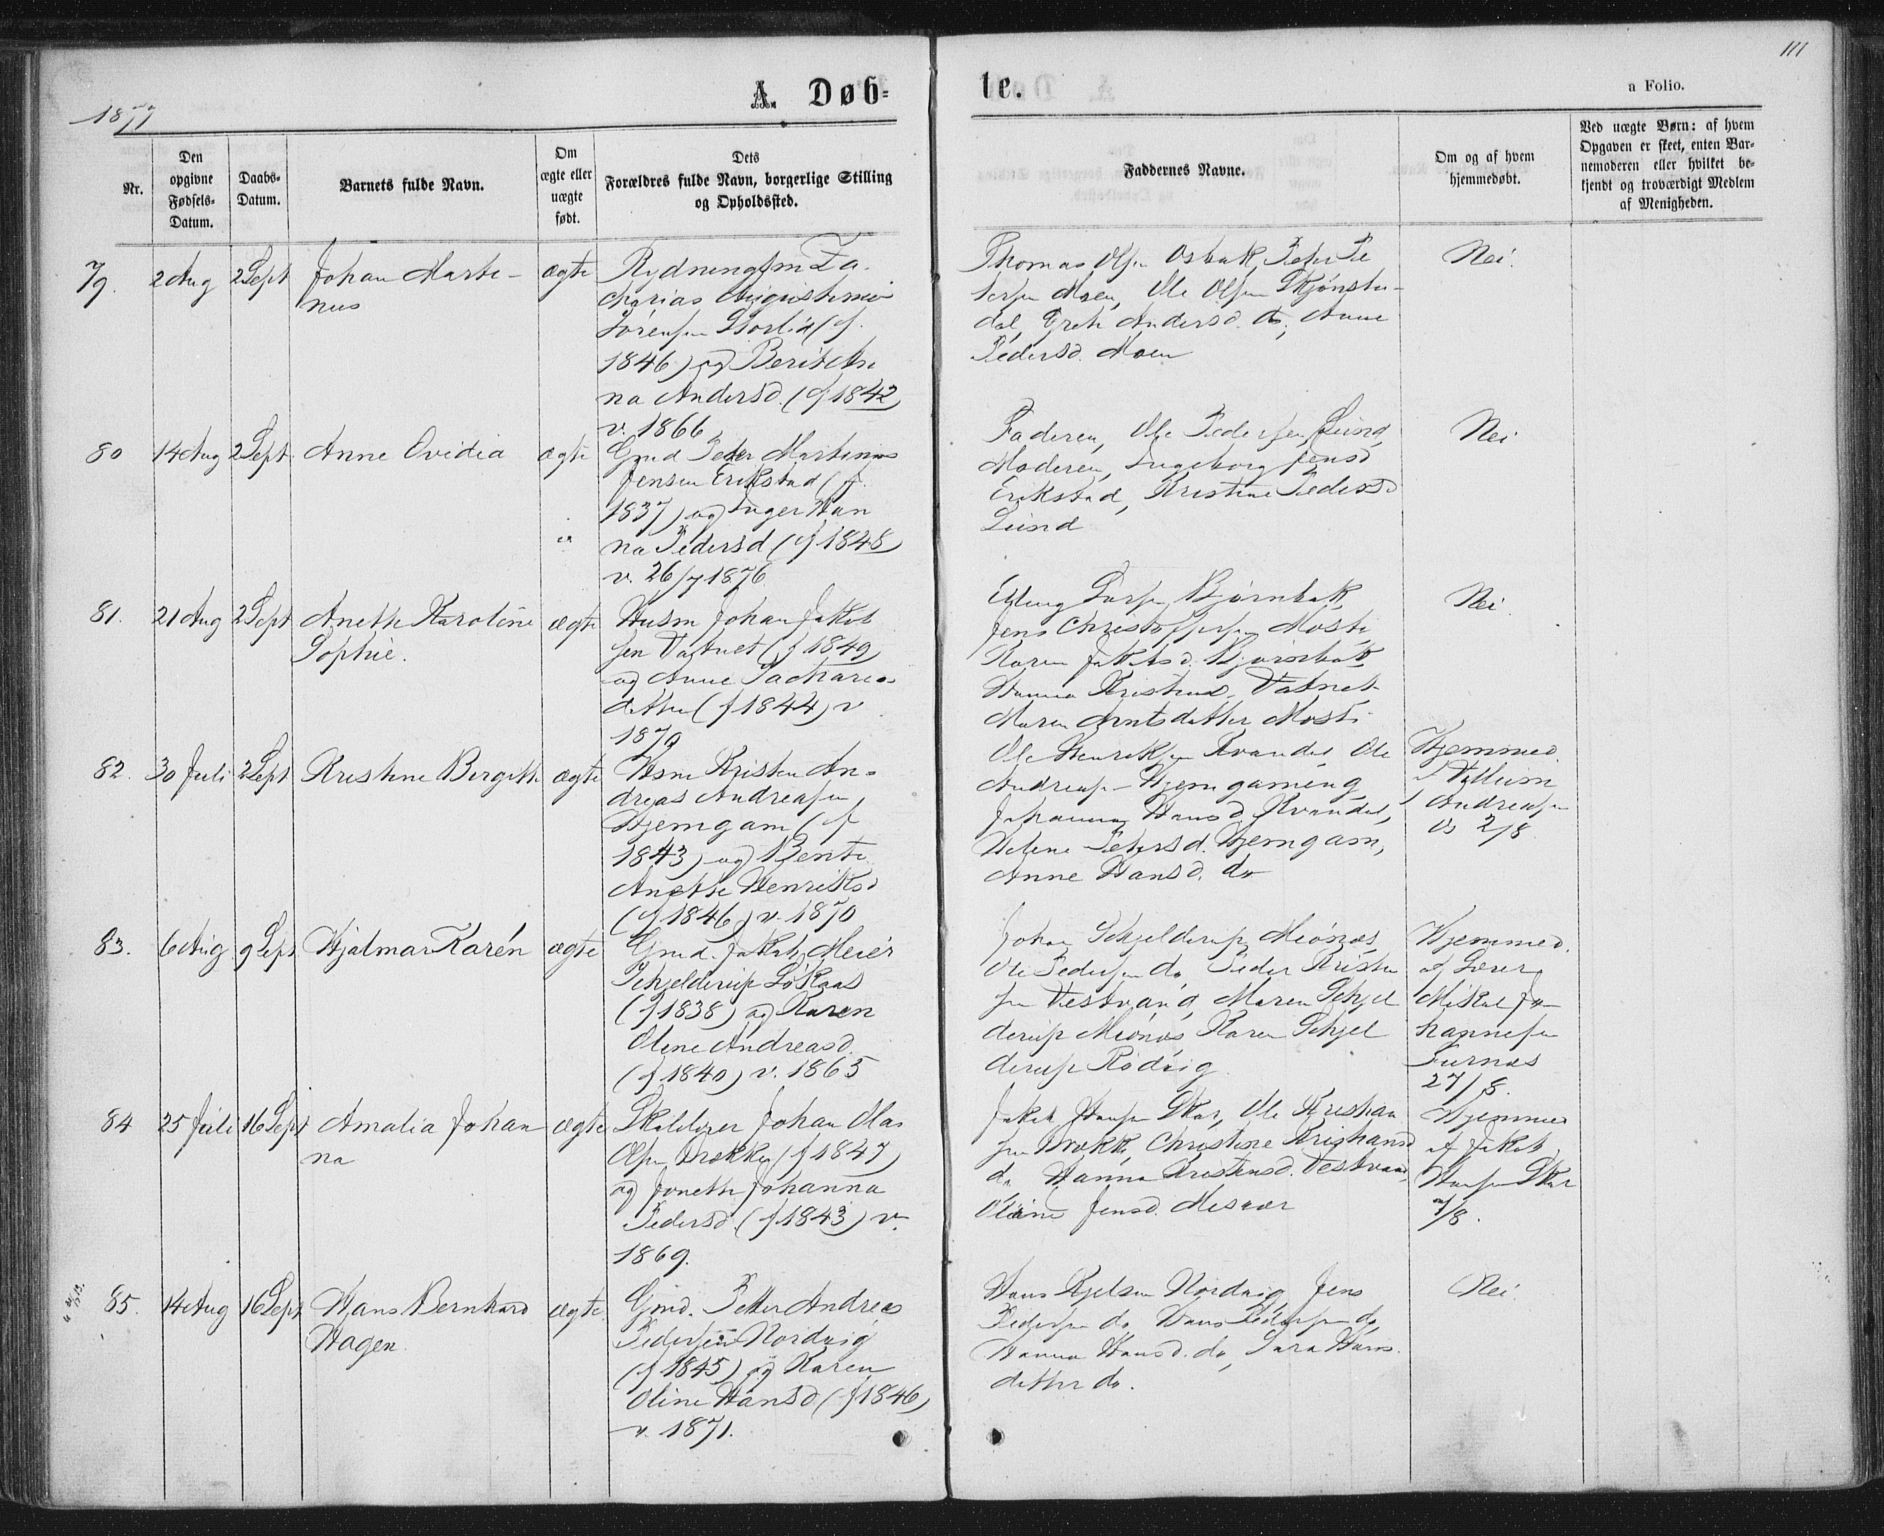 111
1877
A. Døb-
te.
a Folio.
Nr.
Den
opgivne
Fødsels-
Datum.
Daabs-
Datum.
Barnets fulde Navn.
Om
ægte eller
uægte
født.
Dets
Forældres fulde Navn, borgerlige Stilling
og Opholdssted.
Faddernes Navne.
Om og af hvem
hjemmedøbt.
Ved uægte Børn: af hvem
Opgaven er skeet, enten Bar-
nemoderen eller hvilket be-
kjendt og troværdigt Medlem
af Menigheden.
79.
2 Aug
2 Sept
Johan Marti-
nus
ægte
Rydningsm Za-
charias
Sørensen Storlid (f.
1846) og Berit
na Andersd. (f 1842)
v. 1866
Thomas Olsen Osbak, Peter Pe
tersen Moen, Ole Olsen Skjønsta-
dal, Andersd. do, Anne
Pedersd. Moen
Nei.
80
14 Aug
2 Sept.
Anne Ovidia
ægte
Gmd Peder Martinus
Jensen Erikstad (f.
1837) og Inger Han
na Pedersd (f 1848)
v. 26/7 1876
Faderen, Ole Pedersen Lund,
Moderen, Ingeborg Jensd
Erikstad, Kristine Pedersd
Lund
Nei
81.
21 Aug
2 Sept
Anette Karoline
Sophie.
ægte
Husm Johan Jakob
sen Vatnet (f 1849)
og Anne Zacharias
datter (f 1844) v
1870
Larsen Bjørnbak,
Jens Christoffersen Mosti
Karen Jakobsd. Bjørnbak
Hanna Vatnet
Maren Arntsdatter Mosti
Nei
82.
30 Juli
2 Sept
Kristine Birgitte
ægte
Husm Kristen An-
dreas Andreasen
Hjemgam (f
1843) og Bente
Anette Henriksd
(f 1846) v. 1870
Ole Henriksen Kvandal, Ole
Andreas. Hjemgam
Johanna Hansd Kvandal,
Helene Petersd. Hjemgam,
Anne Hansd. do
Hjemmed.
af
Andreasen
2/8
83.
6 Aug
9 Sept
Hjalmar Karén
ægte
Gmd. Jakob Meier
Schjelderup Løkaas
(f 1838) og Karen
Oline Andreasd.
(f 1840) v. 1865
Johan Schjelderup Meønæs
Ole Pedersen do, Peder Kristen
sen Vestvang, Maren Schjel
derup Meønæs Karen Schjel
derup Rødvig.
Hjemmed.
af Lærer
Mikal Jo-
hannesen
Furnæs
27/8.
84
25 Juli
16 Sept
Amalia Johan
na
ægte
Johan Olai
Olsen Brække (f 1847)
og Jonette Johanna
Pedersd. (f 1843) v.
1869.
Jakob Hansen Skar, Ole Kristian
sen Brække, Christine Kristiansd
do, Hanna Kristensd. Vestvang,
Oline Jensd. Mesvær
Hjemmed
af Jakob
Hansen Skar
/8.
85.
14 Aug
16 Sept
Hans Bernhard
Hagen
ægte
Gmd. Petter Andreas
Pedersen Nordvig
(f 1845) og Karen
Oline Hansd (f 1846)
v. 1871.
Hans Kjelsen Nordvig, Jens
Pedersen do, Hans Pedersen do,
Hanna Hansd. do, Sara Hans
datter do.
Nei.